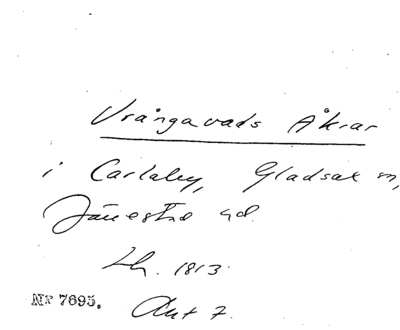 Vrångavads Åkrar
i Carlaby, Gladsax sn,
Järrestad hd.
Lh. 1813.
Akt 7.
Nr 7695.